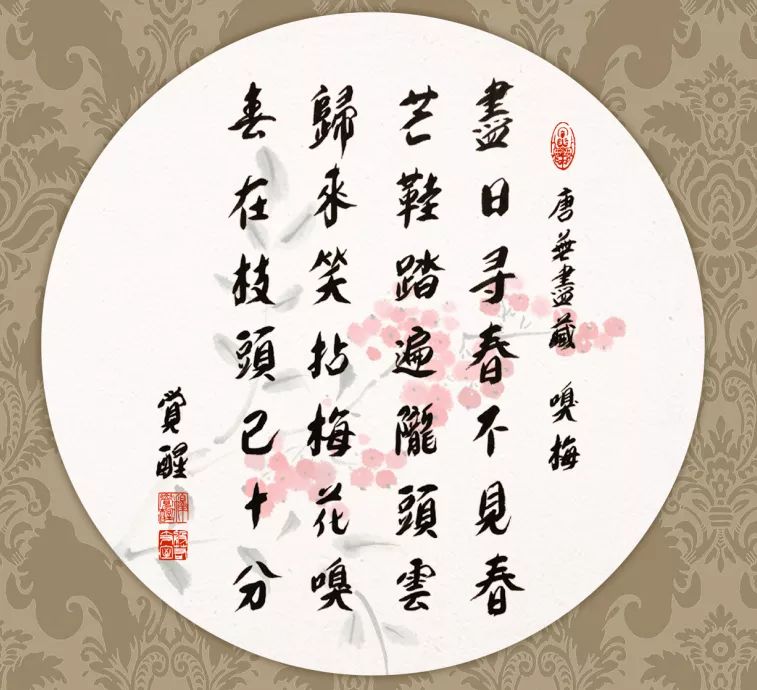 唐無盡藏 嗅梅
盡日寻春不見春
芒鞋踏遍隴頭雲
歸来笑拈梅花嗅
春在枝頭已十分
覺醒